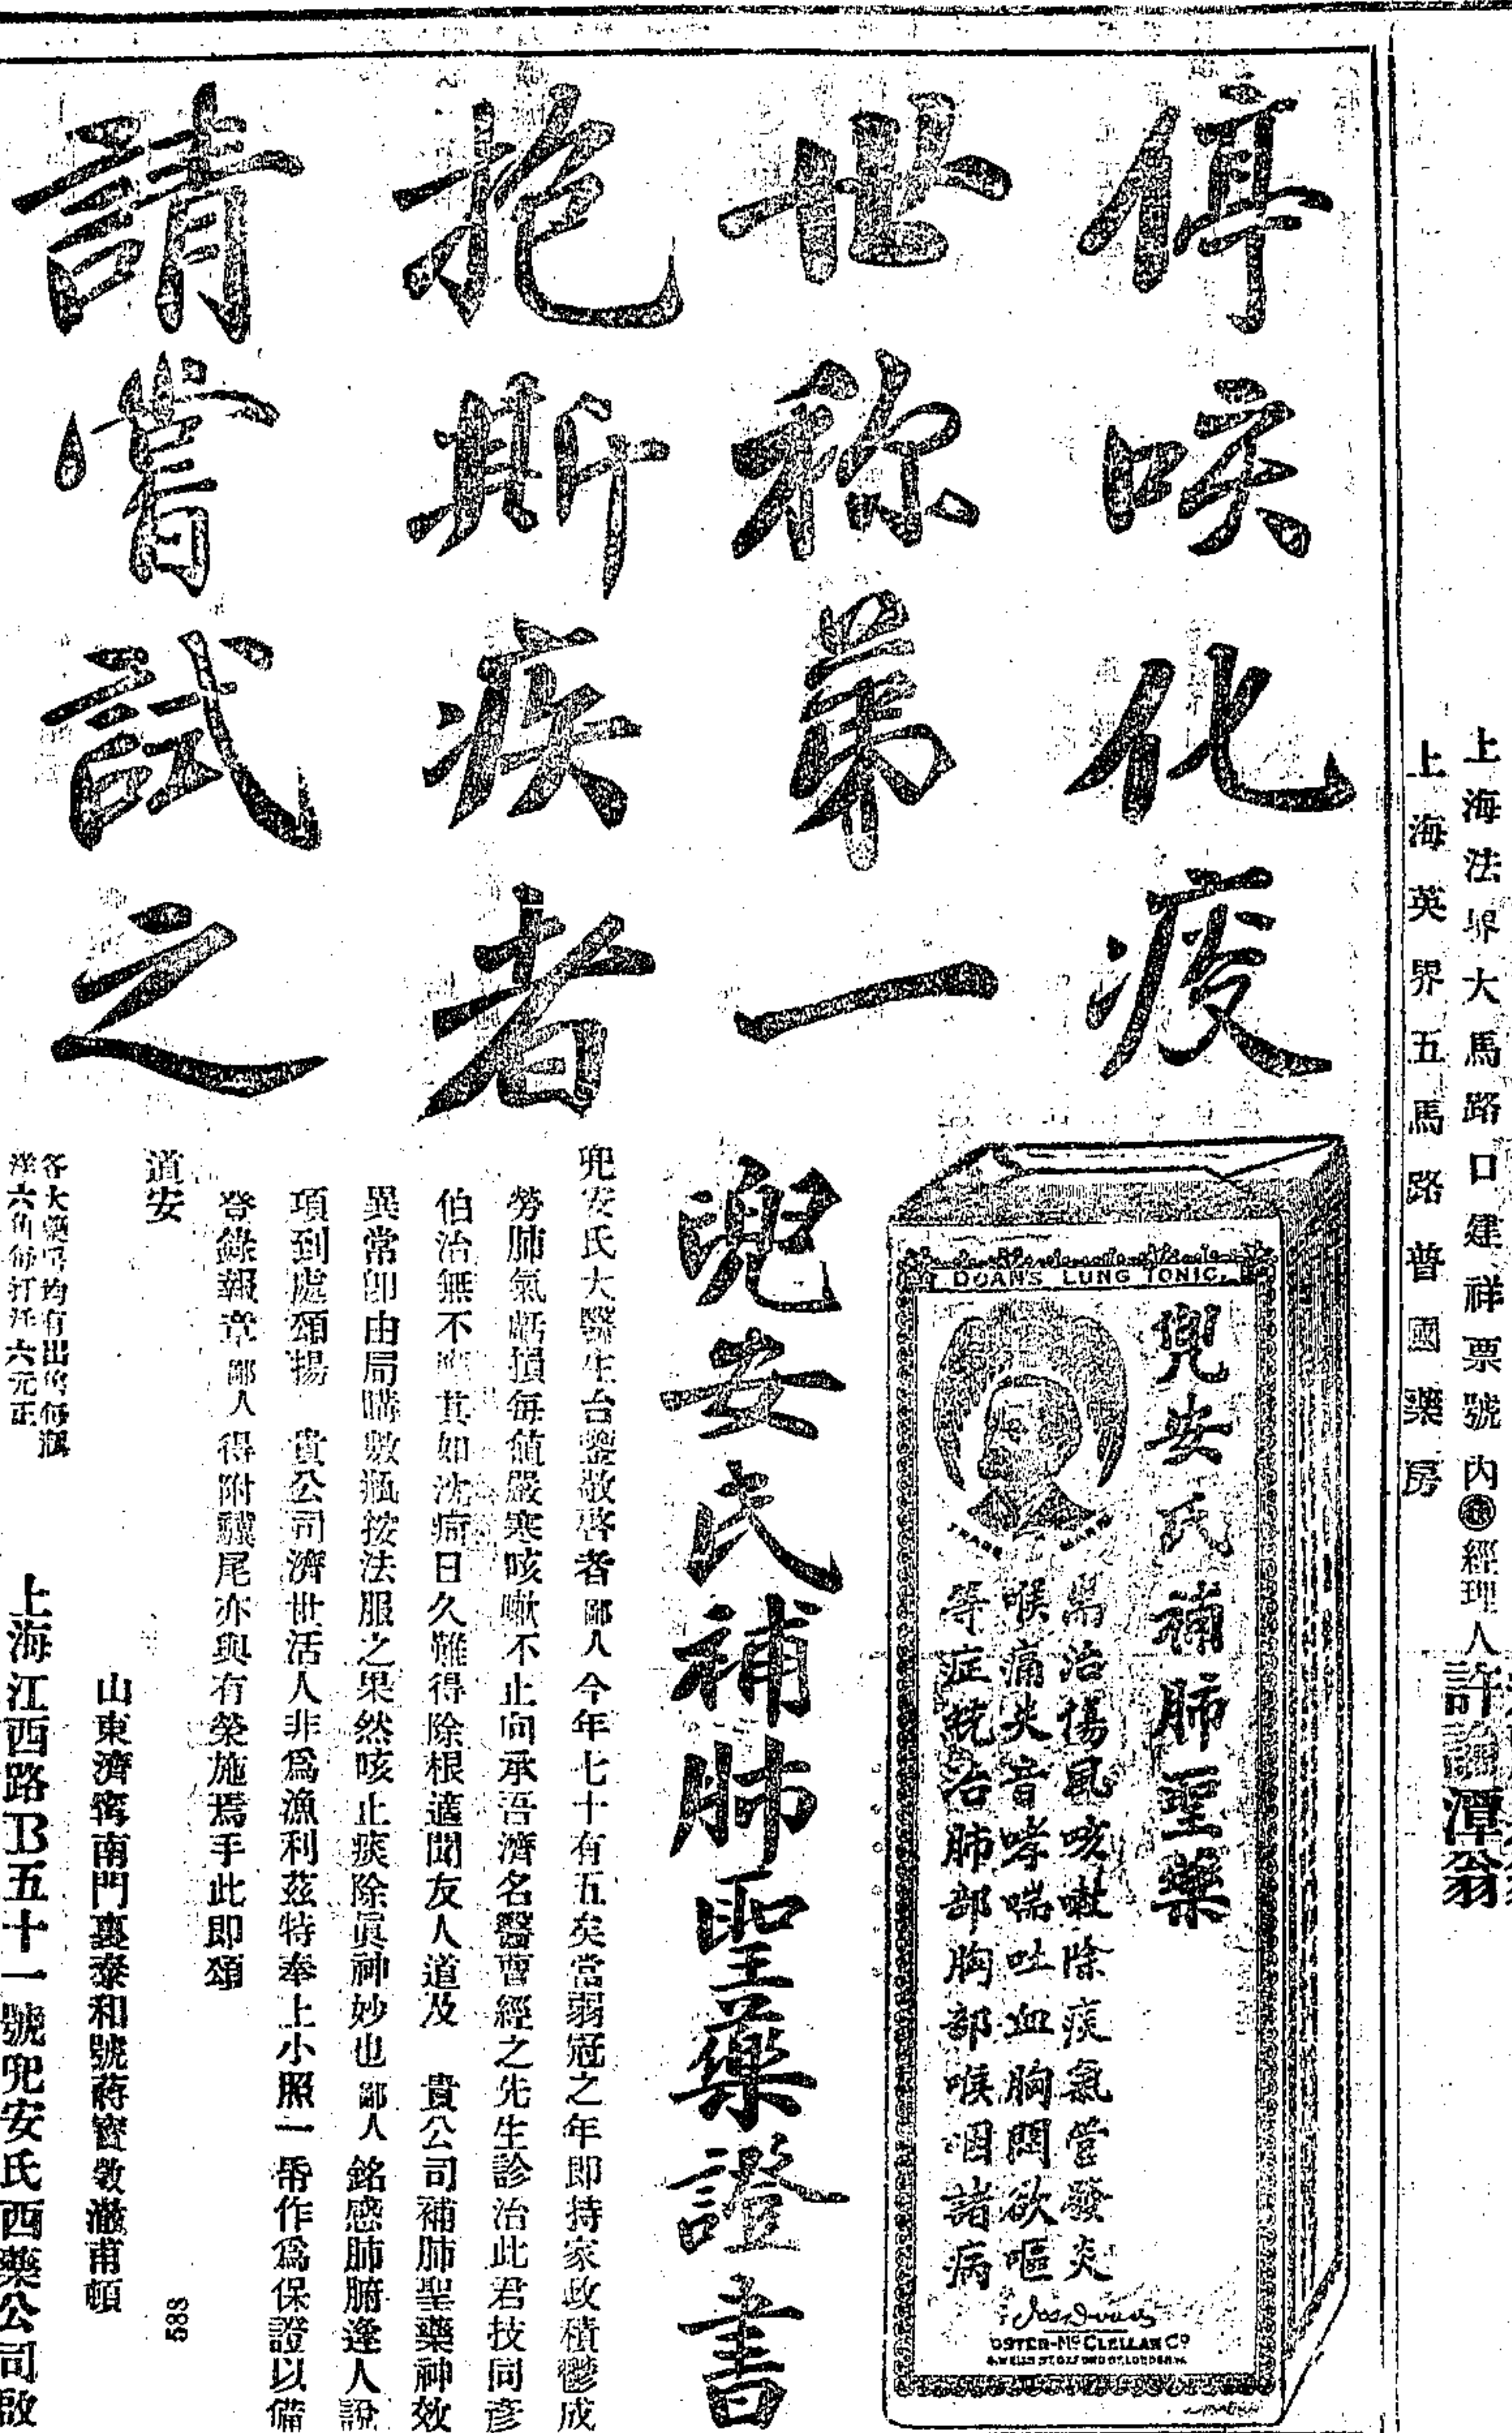 上海法界大馬路口建祥票號內經理人許潭翁
上海英界五馬路普國藥房
停咳化痰
世称第一
抱斯疾者
請嘗試之
DOAN'S LUNG TONIC.
兜安氏補肺聖藥
TRADE MARK
耑治傷風咳嗽除痰氣管發炎
喉痛失音哮喘吐血胸悶欲嘔
等症統治肺部胸部喉咽諸病
FOSTER-McCLELLAN Co
兜安氏補肺聖藥證書
兜安氏大醫生台鑒敬啓者鄙人今年七十有五矣當弱冠之年即持家政積鬱成
勞肺氣虧損每値嚴寒咳嗽不止向承吾濟名醫曹經之先生診治此君技同彥
伯治無不應其如沈疴日久難得除根適聞友人道及 貴公司補肺聖藥神效
異常卽由局購數瓶按法服之果然咳止痰除眞神妙也鄙人銘感肺腑逢人說
項到處頌揚 貴公司濟世活人非爲漁利茲特奉上小照一帋作爲保證以備
登錄報章鄙人得附驥尾亦與有榮施焉手此即頌
道安
山東濟寗南門裏泰和號蔣寶敎澂甫頓
583
各大藥房均有出售每瓶
洋六角每打洋六元正
上海江西路B五十一號兜安氏西藥公司啟